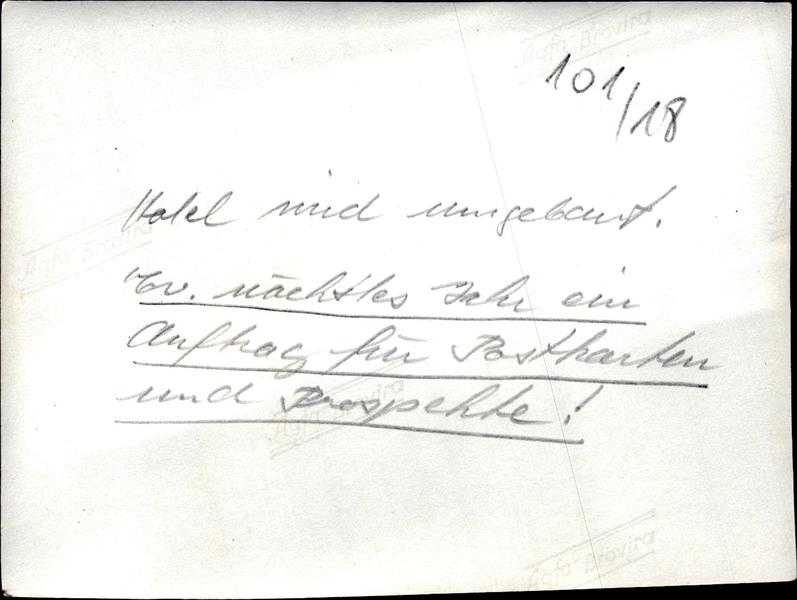 Agfa Brovira
101/18
Hotel wird umgebaut.
Agfa Brovira
Ev. nächstes Jahr ein
Auftrag für Postkarten
und Prospekte!
Agfa Brovira
Agfa Brovira